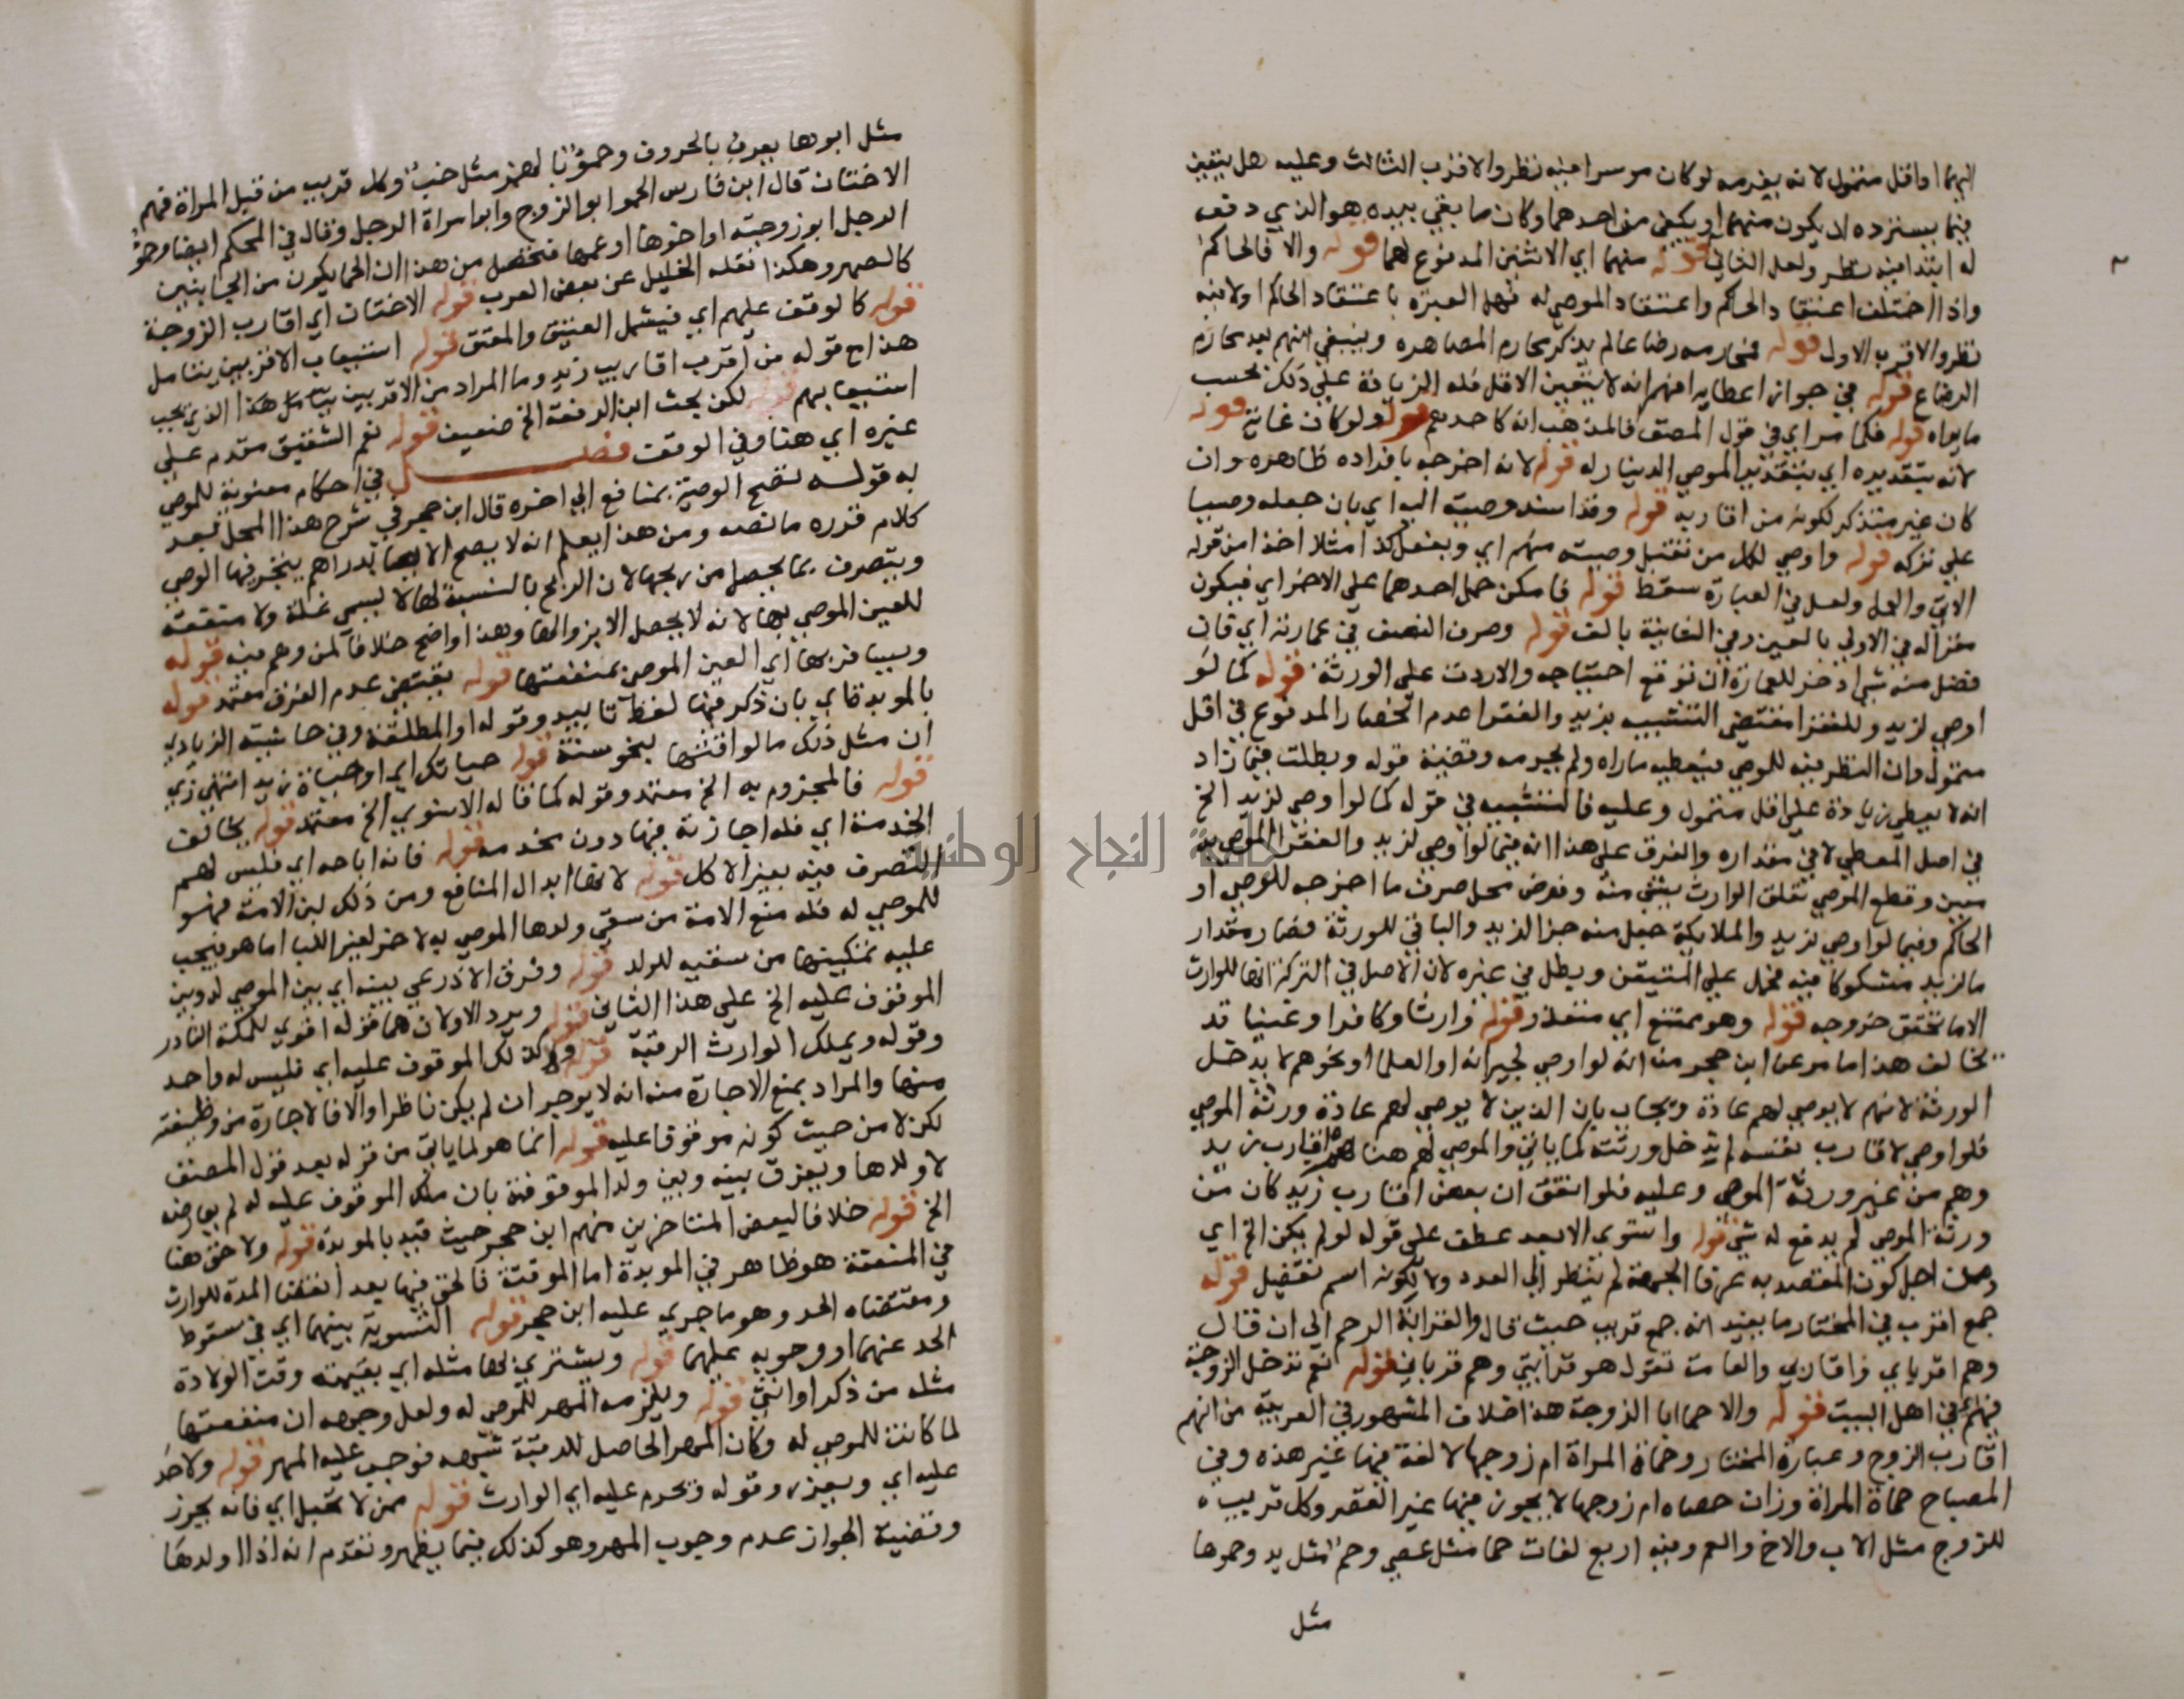 اليهما او اقل متمول لانه يغرمه لو كان موسرا فيه نظر والاقرب الثالث وعليه هل يتعين
فيما يسترده ان يكون منهما او يكفي من احدهما وكان ما بقي بيده هو الذي دفعه
له ابتدا فيه نظر ولعل الثاني قوله منهما اي الاثنين المدفوع لهما قوله والا فالحاكم
واذا اختلف اعتقاد الحاكم واعتقاد الموصي له فهل العبرة باعتقاد الحاكم او لا فيه
نظر والاقرب الاول قوله فمحارمه رضاعا لم يذكر محارم المصاهرة وينبغي انهم بعد محارم
الرضاع قوله في جواز اعطايه افهم انه لا يتعين الاقل فله الزيادة علي ذلك بحسب
ما يراه قوله فكما مر اي في قول المصنف فالمذهب انه كاحدهم قوله ولو كان غانية قوله
لانه بتقديره اي بتقدير الموصي الدينار له قوله لانه اخرجه بافراده ظاهره وان
كان غير متذكر لكونه من اقاربه قوله وقد اسند وصيته اليه اي بان جعله وصيا
علي تركه قوله واوصي لكل من تقبل وصيته منهم اي ويفعل كذا مثلا اخذا من قوله
الاتي والعمل ولعل في العبارة سقط قوله فامكن حمل احدهما علي الاخر اي فيكون
مقراله في الاولي بالعين وفي الثانية بالف قوله وصرف النصف في عمارته اي فان
فضل منه شي ادخر للعمارة ان توقع احتياجه والا ردت علي الورثة قوله كما لو
اوصي لزيد وللفقرا مقتضي التشبيه بزيد والفقرا عدم انحصار المدفوع في اقل
متمول وان النظر فيه للوصي فيعطيه ما راه ولم يحرمه وقضية قوله وبطلت فيما زاد
انه لا يعطي زيادة علي اقل متمول وعليه فالتشبيه في قوله كما لو اوصي لزيد الخ
في اصل المعطي لا في مقداره والفرق علي هذا انه فيما لو اوصي لزيد والفقرا الموصي به
معين وقطع الموصي تعلق الوارث بشي منه وفوض محل صرف ما اخرجه للوصي او
الحاكم وفيما لو اوصي لزيد والملايكة جعل منه جزا لزيد والباقي للورثة فصار مقدار
ما لزيد مشكوكا فيه فحمل علي المتيقن وبطل في غيره لان الاصل في التركة انها للوارث
الا ما تحقق خروجه قوله وهو ممتنع اي متعذر قوله وارثا وكافرا وغنيا قد
يخالف هذا ما مر عن ابن حجر من انه لو اوصي لجيرانه او العلما او نحوهم لا يدخل
الورثة لانهم لا يوصي لهم عادة ويجاب بان الذين لا يوصي لهم عادة ورثة الموصي
فلو اوصي لاقارب نفسه لم تدخل ورثته كما ياتي والموصي لهم هنا اقارب زيد
وهم من غير ورثة الموصي وعليه فلو اتفق ان بعض اقارب زيد كان من
ورثة الموصي لم يدفع له شي قوله واستوي الابعد عطف علي قوله لو لم يكن الخ اي
ومن اجل كون المقصد به عرفا الجهة لم ينظر الي العدد ولا لكونه اسم تفضيل قوله
جمع اقرب في المختار ما يفيد انه جمع قريب حيث قال والقرابة الرحم الي ان قال
وهم اقرباي واقاربي والعامة تقول هو قرابتي وهم قراباتي قوله نعم تدخل الزوجة
في اهل البيت قوله والاحما ابا الزوجة هذا خلاف المشهور في العربية من انهم
اقارب الزوج وعبارة المختار وحماة المراة ام زوجها لا لغة فيها غير هذه وفي
المصباح حماة المراة وزان حصاه ام زوجها لا يجوز فيها غير القصر وكل قريب
للزوج مثل الاب والاخ والعم وفيه اربع لغات حما مثل عصي وحم مثل يد وحموها
مثل
مثل ابوها يعرف بالحروف وحمؤ بالهمز مثل خب وكل قريب من قبل المراة فهم
الاختان قال ابن فارس الحمو ابو الزوج وابو امراة الرجل وقال في المحكم ايضا وحمؤ
الرجل ابو زوجته او اخوها او عمها فتحصل من هذا ان الحما يكون من الجانبين
كالصهر وهكذا نقله الخليل عن بعض العرب قوله الاختان اي اقارب الزوجة
قوله كالو وقف عليهم اي فيشمل العتيق والمعتق قوله استيعاب الاقربين يتامل
هذا مع قوله من اقرب اقارب زيد وما المراد من الاقربين بتامل هذا الذي يجب
استيعابهم قوله لكن بحث ابن الرفعة الخ ضعيف قوله نعم الشقيق مقدم علي
غيره اي هنا وفي الوقف فصل في احكام معنوية للموصي
به قوله تصح الوصية بمنافع الي اخره قال ابن حجر في شرح هذا المحل بعد
كلام قرره ما نصه ومن هذا يعلم انه لا يصح الايصا بدراهم يتجر فيها الوصي
ويتصرف بما يحصل من ربحها لان الربح بالنسبة لها لا يسمي غلة ولا منفعة
للعين الموصي بها لانه لا يحصل الا بزوالها وهذا واضح خلافا لمن وهم فيه قوله
ويسافر بها اي العين الموصي بمنفعتها قوله يقتضي عدم الفرق معتمد قوله
بالمؤبدة اي بان ذكر فيها لفظ تابيد وقوله او المطلقة وفي حاشية الزيادي
ان مثل ذلك ما لو اقتتها بنحو سنة قوله حياتك اي او حياة زيد انتهي زي
قوله فالمجزوم به الخ معتمد وقوله كما قاله الاسنوي الخ معتمد قوله بخالف
الخدمة اي فله اجازته فيها دون يخدمه قوله فانه اباحه اي فليس لهم
التصرف فيه بغير الاكل قوله لانها ابدال المنافع ومن ذلك لبن الامة فهو
للموصي له فله منع الامة من سقي ولدها الموصي به لاخر لغير اللبا اما هو فيجب
عليه تمكينها من سقيه للولد قوله وفرق الاذرعي بينه اي بين الموصي له وبين
الموقوف عليه الخ علي هذا الثاني قوله ويرد الاولان هما قوله اقوي لملكه النادر
وقوله ويملك الوارث الرقبة قوله وكذلك الموقوف عليه اي فليس له واحد
منها والمراد بمنع الاجارة منه انه لا يوجر ان لم يكن ناظرا والا فالاجارة من وظيفته
لكن لا من حيث كونه موقوفا عليه قوله انما هو لما ياتي من قوله بعد قول المصنف
لاولادها ويفرق بينه وبين ولد الموقوفة بان ملك الموقوف عليه له لم يعارضه
الخ قوله خلافا لبعض المتاخرين منهم ابن حجر حيث قيد بالموبدة قوله ولا حق هنا
في المنفعة هو ظاهر في الموبدة اما الموقتة فالحق فيها بعد انقضا المدة للوارث
ومقتضاه الحد وهو ما جري عليه ابن حجر قوله التسوية بينهما اي في سقوط
الحد عنهما او وجوبه عليهما قوله ويشتري لها مثله اي بقيمته وقت الولادة
مثله من ذكر او انثي قوله ويلزمه المهر للموصي له ولعل وجهه ان منفعتها
لما كانت للموصي له وكان المهر الحاصل للرقبة شبهه فوجب عليه المهر قوله ولا حد
عليه اي ويعزر وقوله ويحرم عليه اي الوارث قوله ممن لا تحبل اي فانه يجوز
وقضية الجواز عدم وجوب المهر وهو كذلك فيما يظهر وتقدم انه اذا اولدها
جامعة النجاح الوطنية